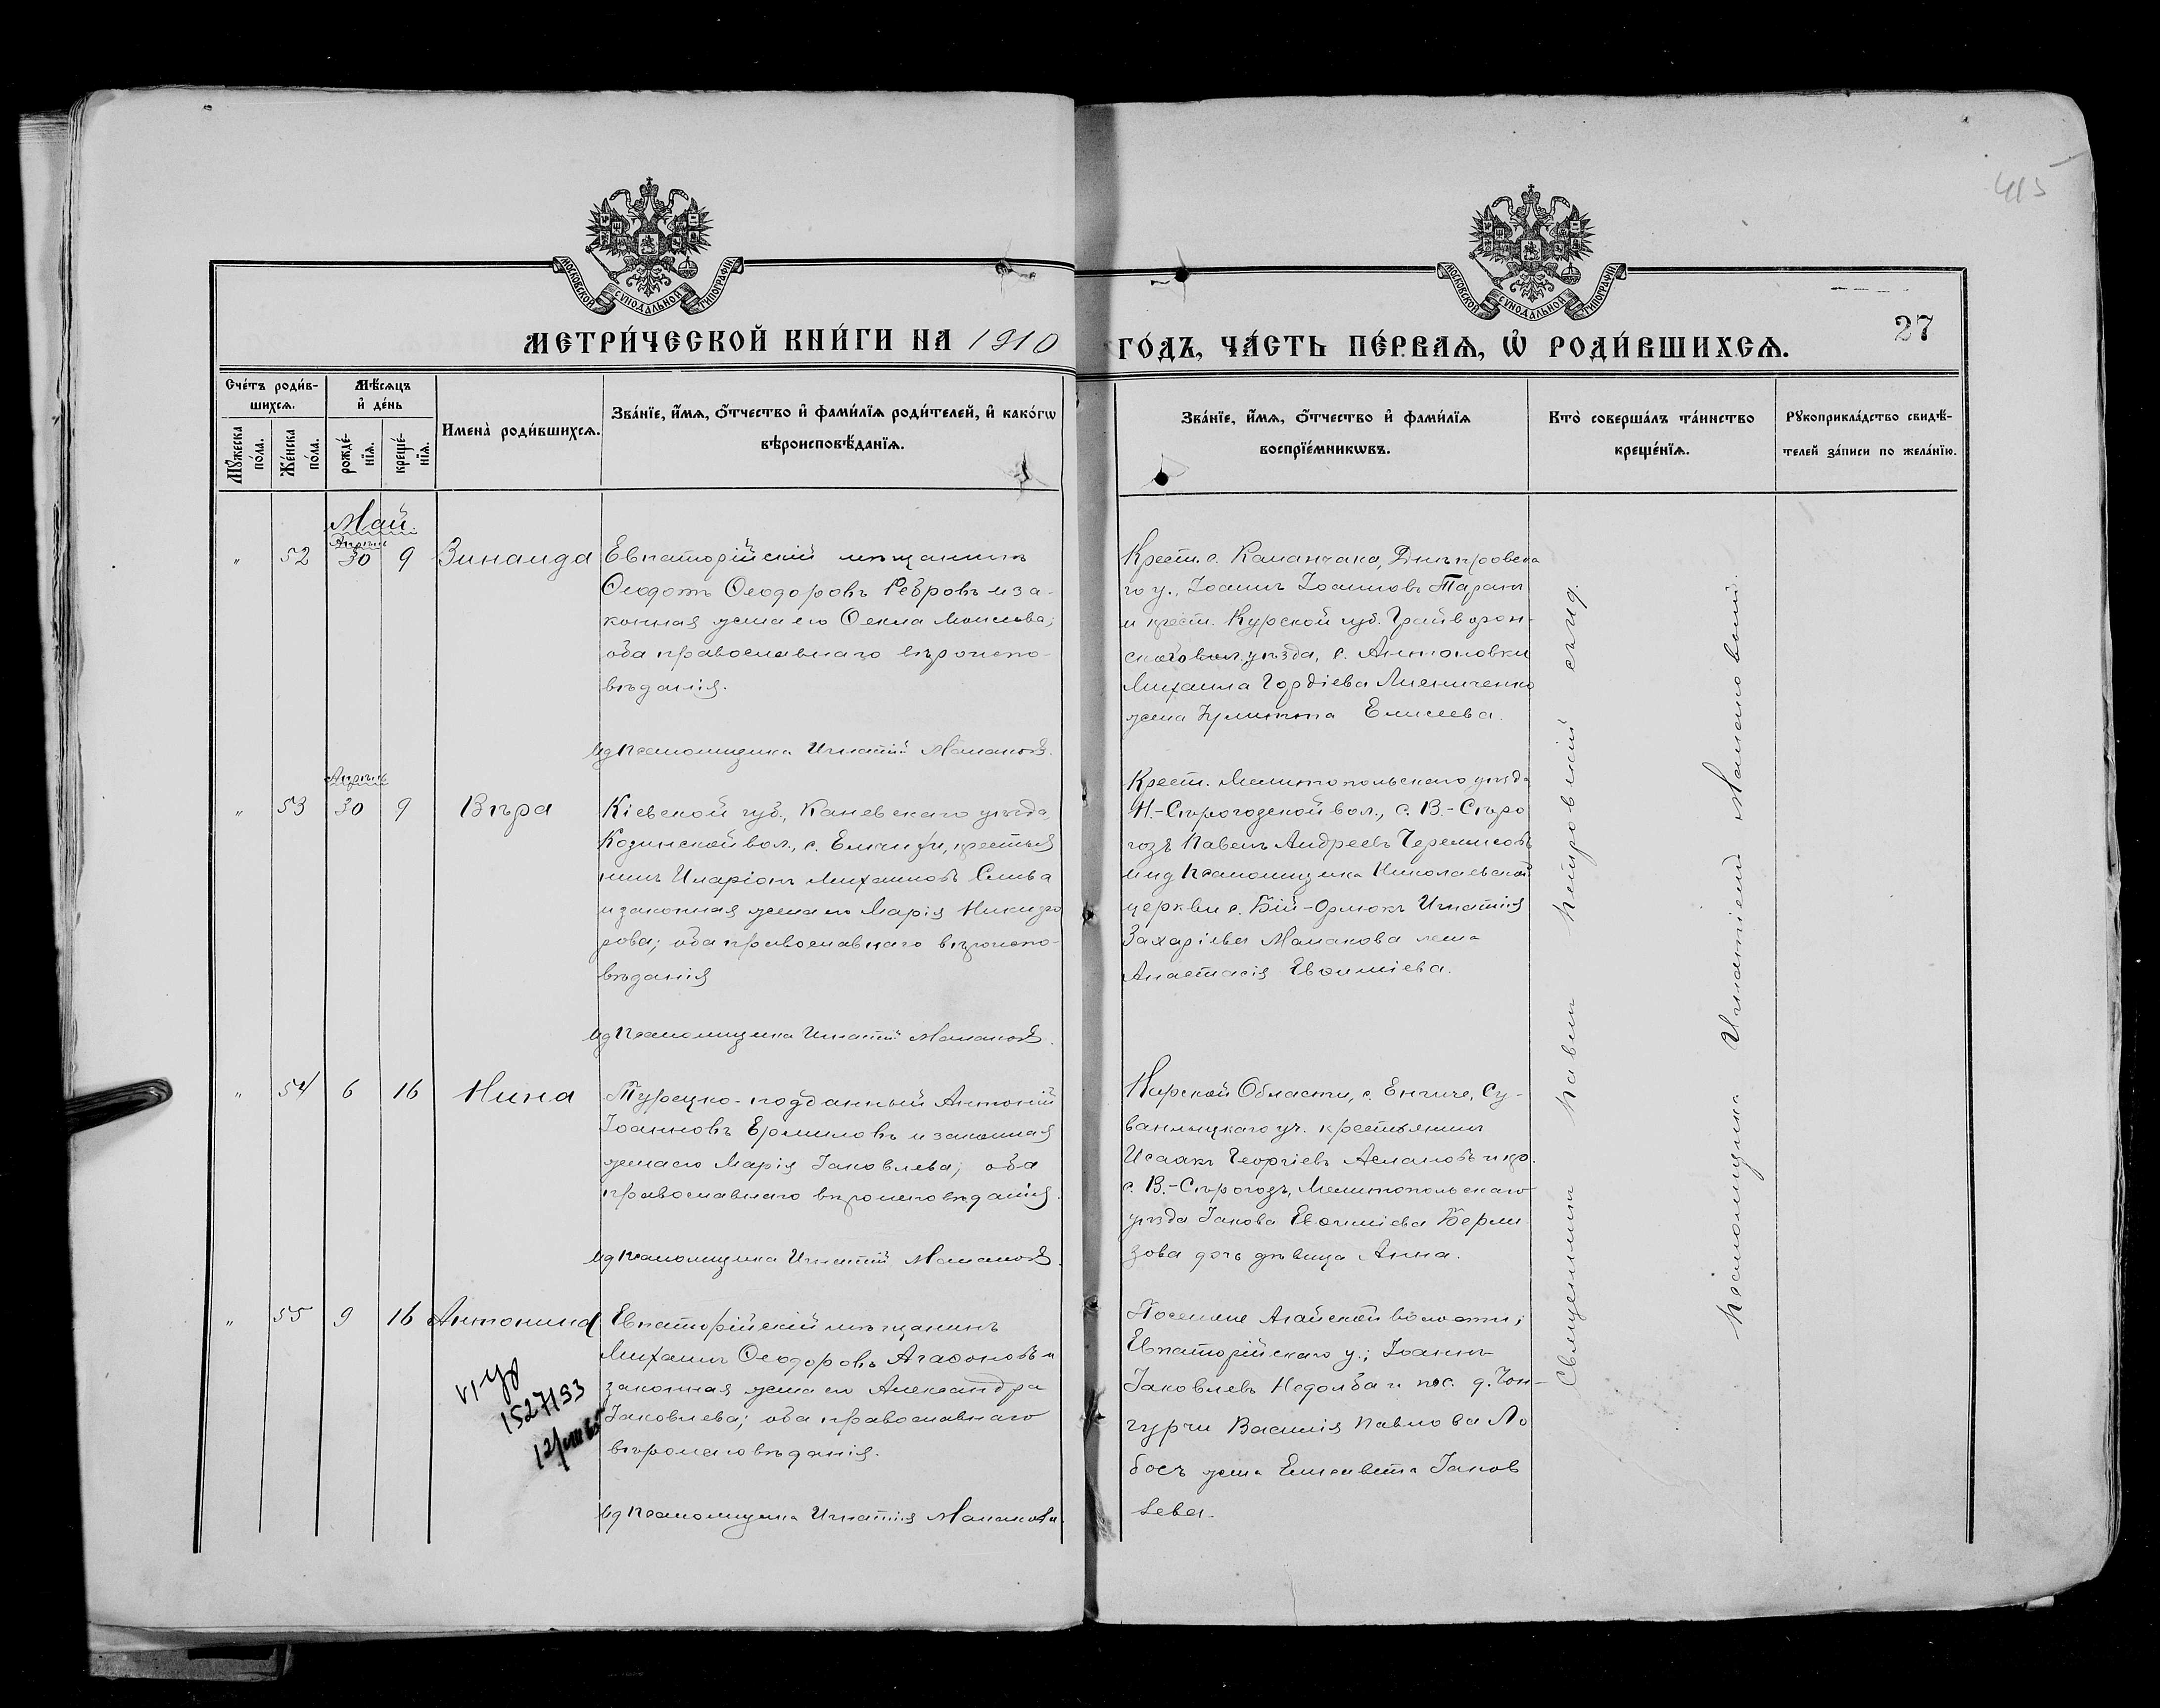 415
МОСКОВСКОЙ СѴНОДАЛЬНОЙ ТИПОГРАФІИ
МОСКОВСКОЙ СѴНОДАЛЬНОЙ ТИПОГРАФІИ
МЕТРИ́ЧЕСКОЙ КНИ́ГИ НА 1910
ГО́ДЪ, ЧА́СТЬ ПЕ́РВАѦ, Ѡ҆ РОДИ́ВШИХСѦ.
27
Сче́тъ роди́в-
шихсѧ.
Мꙋ́жеска по́ла.
Же́нска по́ла.
Мѣ́сѧцъ
и҆ де́нь
рожде́-
нїѧ.
креще́-
нїѧ.
Имена̀ роди́вшихсѧ.
Зва́нїе, и҆́мѧ, ѻ҆́тчество и҆ фами́лїѧ роди́телей, и҆ како́гѡ
вѣроисповѣ́данїѧ.
Зва́нїе, и҆́мѧ, ѻ҆́тчество и҆ фами́лїѧ
воспрїе́мникѡвъ.
Кто̀ соверша́лъ та́инство
креще́нїѧ.
Рꙋкоприкла́дство свидѣ́-
телей за́писи по жела́нїю.
Май.
Апрѣль
" 52 30 9 Зинаида
Евпаторійскій мѣщанинъ
Ѳеодотъ Ѳеодоровъ Ребровъ и за-
конная жена его Ѳекла Моисеева;
оба православнаго вѣроиспо-
вѣданія.
Ид псаломщика Игнатій Маманов.
Крест. с. Каланчака, Днѣпровска
го у., Іоаннъ Іоанновъ Таранъ
и крест. Курской губ. Грайворон-
скаго уѣзда, с. Антоновки
Михаила Гордіева
жена Улитта Елисеева.
Апрѣль
" 53 30 9 Вѣра
Кіевской губ., Каневскаго уѣзда,
Козинской вол., с. крестья
нинъ Иларіонъ Михаиловъ Слива
и законная жена его Марія Никифо
рова; оба православнаго вѣроиспо-
вѣданія
Ид псаломщика Игнатій Маманов.
Крест. Мелитопольскаго уѣзда
Н.-Сѣрогозской вол., с. В.-Сѣро
гозъ Павелъ Андреевъ Черемисовъ
и ид псаломщика Николаевской
церкви с. Бій-Орлюкъ Игнатія
Захаріева Маманова жена
Анастасія Евѳиміева.
" 54 6 16 Нина
Турецко-подданный Антоній
Іоанновъ Ермиловъ и законная
жена его Марія Іаковлева; оба
православнаго вѣроисповѣданія.
Ид псаломщика Игнатій Маманов.
Карской Области, с. Енгиче, Су-
ванлыцкаго уч. крестьянинъ
Исаакъ Георгіевъ Аслановъ и кр.
с. В.-Сѣрогозъ, Мелитопольскаго
уѣзда Іакова Евѳиміева Берми
зова дочь дѣвица Анна.
" 55 9 16 Антонина
Евпаторійскій мѣщанинъ
Михаилъ Ѳеодоровъ Агаѳоновъ и
законная жена его Александра
Іаковлева; оба православнаго
вѣроисповѣданія.
Ид псаломщика Игнатія Маманова.
Поселяне Агайской волости,
Евпаторійскаго у.; Іоаннъ
Іаковлевъ Недолба и пос. д. Чон-
гурчи Василія Павлова Ло
босъ жена Елисавета Іаков
лева.
1527193
Священникъ Павелъ Пейровскій
Псаломщикъ Игнатій